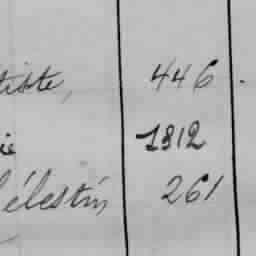 tiste, 446.
ie 1312
Célestin 261